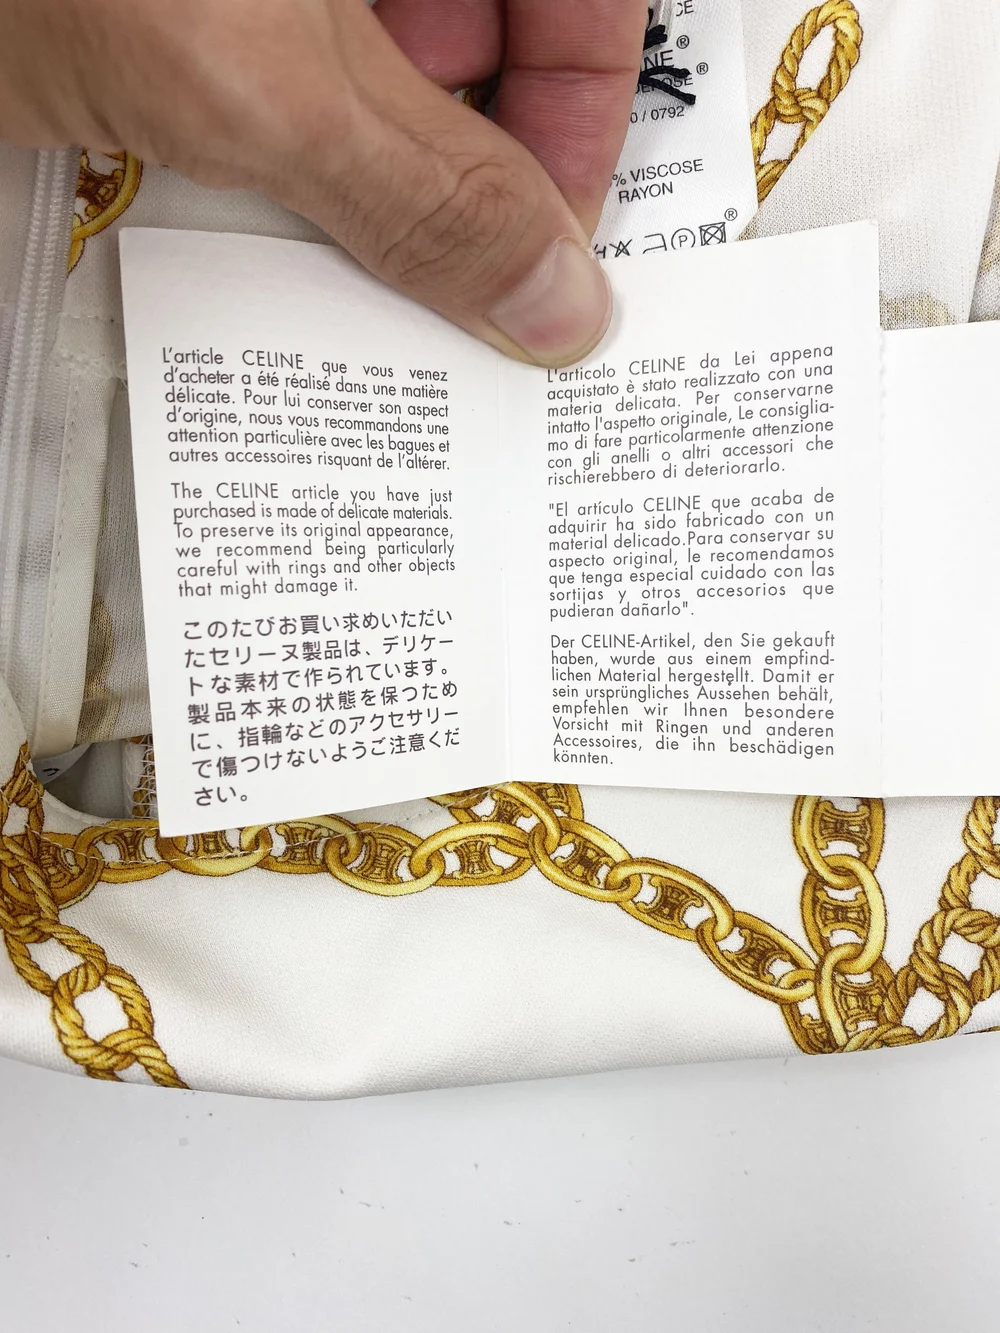 CE
NE®
DÉPOSÉ®
0 / 0792
% VISCOSE
RAYON
®
P
L'article CELINE que vous venez
d'acheter a été réalisé dans une matière
délicate. Pour lui conserver son aspect
d'origine, nous vous recommandons une
attention particulière avec les bagues et
autres accessoires risquant de l'altérer.
The CELINE article you have just
purchased is made of delicate materials.
To preserve its original appearance,
we recommend being particularly
careful with rings and other objects
that might damage it.
このたびお買い求めいただい
たセリーヌ製品は、デリケー
トな素材で作られています。
製品本来の状態を保つため
に、指輪などのアクセサリー
で傷つけないようご注意くだ
さい。
L'articolo CELINE da Lei appena
acquistato è stato realizzato con una
materia delicata. Per conservarne
intatto l'aspetto originale, Le consiglia-
mo di fare particolarmente attenzione
con gli anelli o altri accessori che
rischierebbero di deteriorarlo.
"El artículo CELINE que acaba de
adquirir ha sido fabricado con un
material delicado.Para conservar su
aspecto original, le recomendamos
que tenga especial cuidado con las
sortijas y otros accesorios que
pudieran dañarlo".
Der CELINE-Artikel, den Sie gekauft
haben, wurde aus einem empfind-
lichen Material hergestellt. Damit er
sein ursprüngliches Aussehen behält,
empfehlen wir Ihnen besondere
Vorsicht mit Ringen und anderen
Accessoires, die ihn beschädigen
könnten.